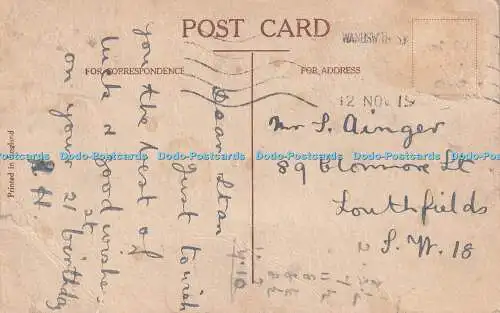 POST CARD
WANDSWTH S.W.
FOR CORRESPONDENCE
FOR ADDRESS
12 NOV 19
Dear Stan
Just to wish
you the best of
luck & good wishes
on your 21st birthday
H.
Mr S. Ainger
89 Elsenmore St
Southfields
S.W. 18
9.10
Printed in England
Dodo-Postcards Dodo-Postcards Dodo-Postcards Dodo-Postcards Dodo-Postcards Dodo-Postcards